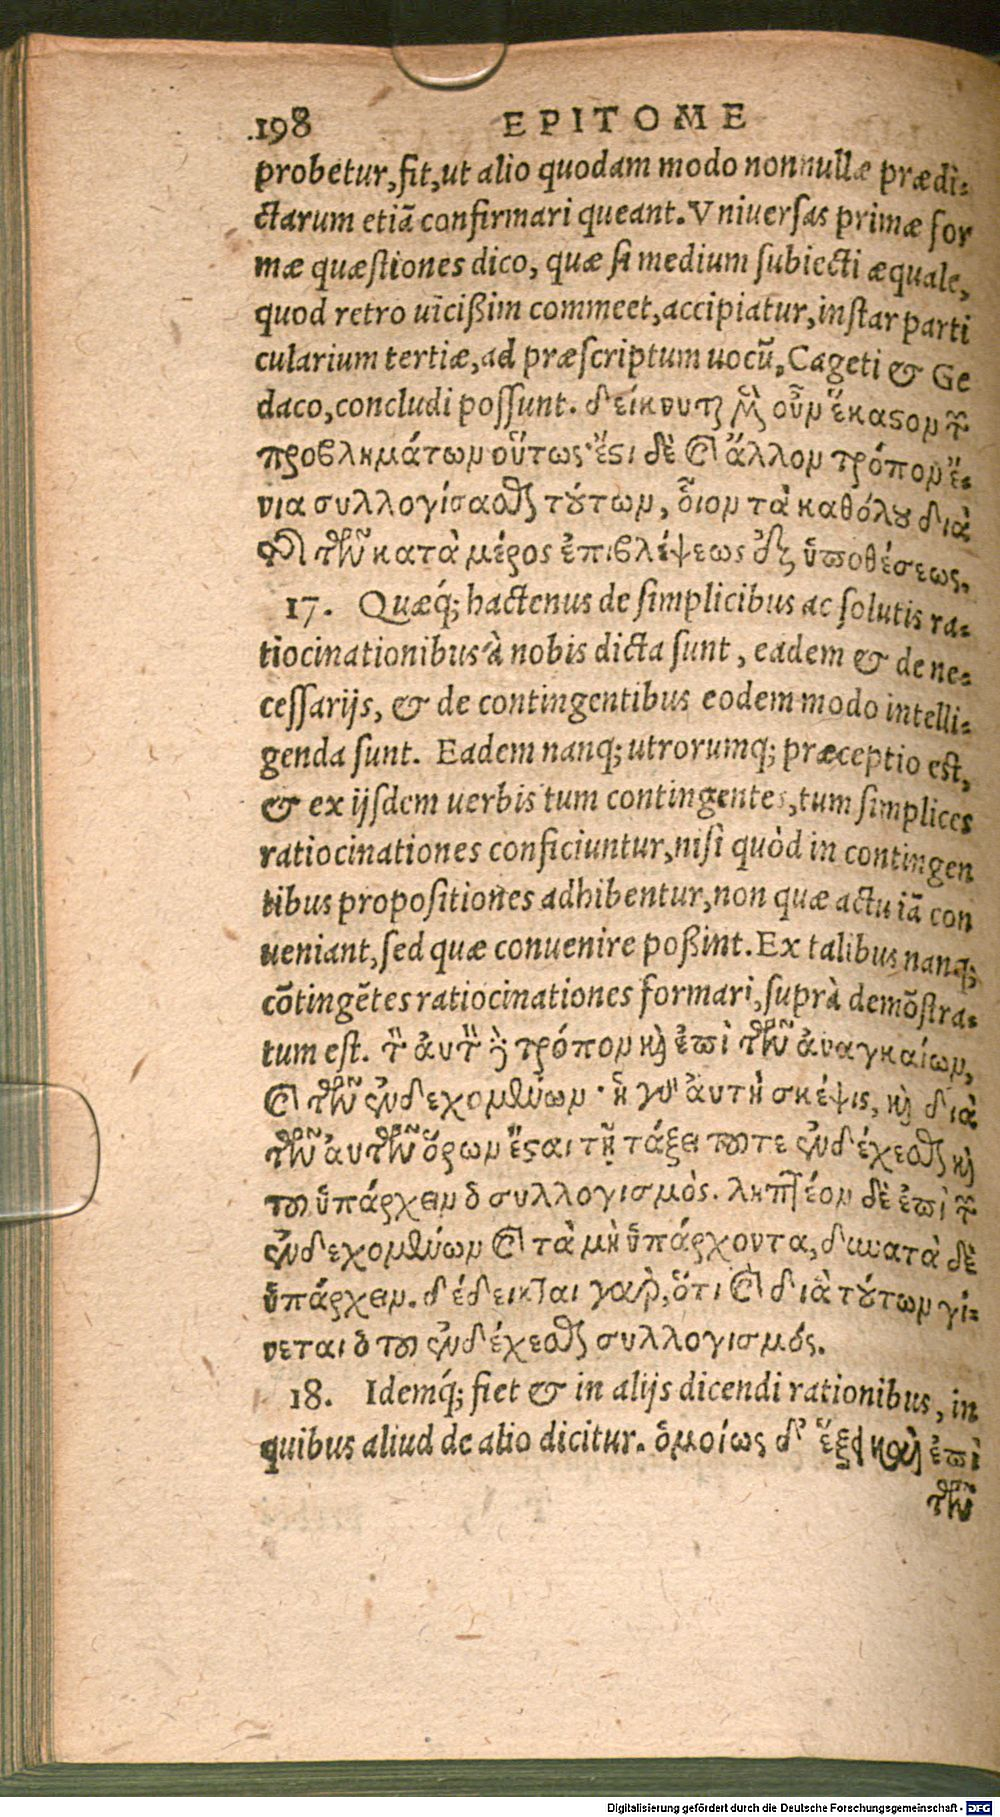 198 EPITOME
probetur, fit, ut alio quodam modo nonnullæ prædi-
ctarum etiã confirmari queant. Vniuersas primæ for
mæ quæstiones dico, quæ si medium subiecti æquale,
quod retro uicißim commeet, accipiatur, instar parti
cularium tertiæ, ad præscriptum uocũ, Cageti & Ge
daco, concludi possunt. δείκνυται μὲν οὖν ἕκαστον τῶν
προβλημάτων οὕτως· ἔστι δὲ καὶ ἄλλον τρόπον ἔ-
νια συλλογίσασθαι τούτων, οἷον τὰ καθόλου διὰ
τῆς τῶν κατὰ μέρος ἐπιβλέψεως ἐξ ὑποθέσεως.
17. Quæq́; hactenus de simplicibus ac solutis ra-
tiocinationibus à nobis dicta sunt, eadem & de ne-
cessarijs, & de contingentibus eodem modo intelli-
genda sunt. Eadem nanq; utrorumq; præceptio est,
& ex ijsdem uerbis tum contingentes, tum simplices
ratiocinationes conficiuntur, nisi quòd in contingen
tibus propositiones adhibentur, non quæ actu iã con
ueniant, sed quæ conuenire poßint. Ex talibus nanq;
cõtingẽtes ratiocinationes formari, suprà demõstra-
tum est. τὸν αὐτὸν δὲ τρόπον καὶ ἐπὶ τῶν ἀναγκαίων,
καὶ τῶν ἐνδεχομένων· ἡ γὰρ αὐτὴ σκέψις, καὶ διὰ
τῶν αὐτῶν ὅρων ἔσται τῇ τάξει τοῦ τε ἐνδέχεσθαι καὶ
τοῦ ὑπάρχειν ὁ συλλογισμὸς. ληπτέον δὲ ἐπὶ τῶν
ἐνδεχομένων καὶ τὰ μὴ ὑπάρχοντα, δυνατὰ δὲ
ὑπάρχειν. δέδεικται γὰρ, ὅτι καὶ διὰ τούτων γί-
νεται ὁ τοῦ ἐνδέχεσθαι συλλογισμός.
18. Idemq́; fiet & in alijs dicendi rationibus, in
quibus aliud de alio dicitur. ὁμοίως δ' ἕξει καὶ ἐπὶ
τῶν
Digitalisierung gefördert durch die Deutsche Forschungsgemeinschaft - DFG